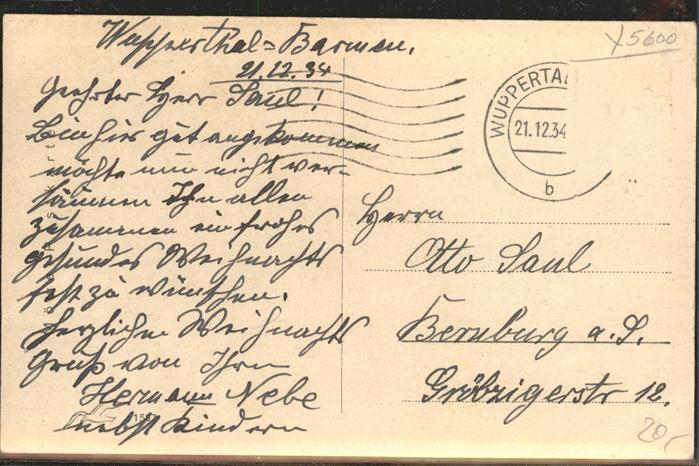 Wupperthal=Barmen.
21.12.34
Geehrter Herr Saul!
Bin hier gut angekommen
möchte nun nicht ver-
säumen Ihn allen
zusammen ein frohes
gesundes Weihnachts
fest zu wünschen.
Herzlichen Weihnachts
Gruß von Ihrn
Hermann Nebe
nebst Kindern
X5600
WUPPERTAL
21.12.34
b
Herrn
Otto Saul
Bernburg a. S.
Gröbzigerstr 12.
20,-